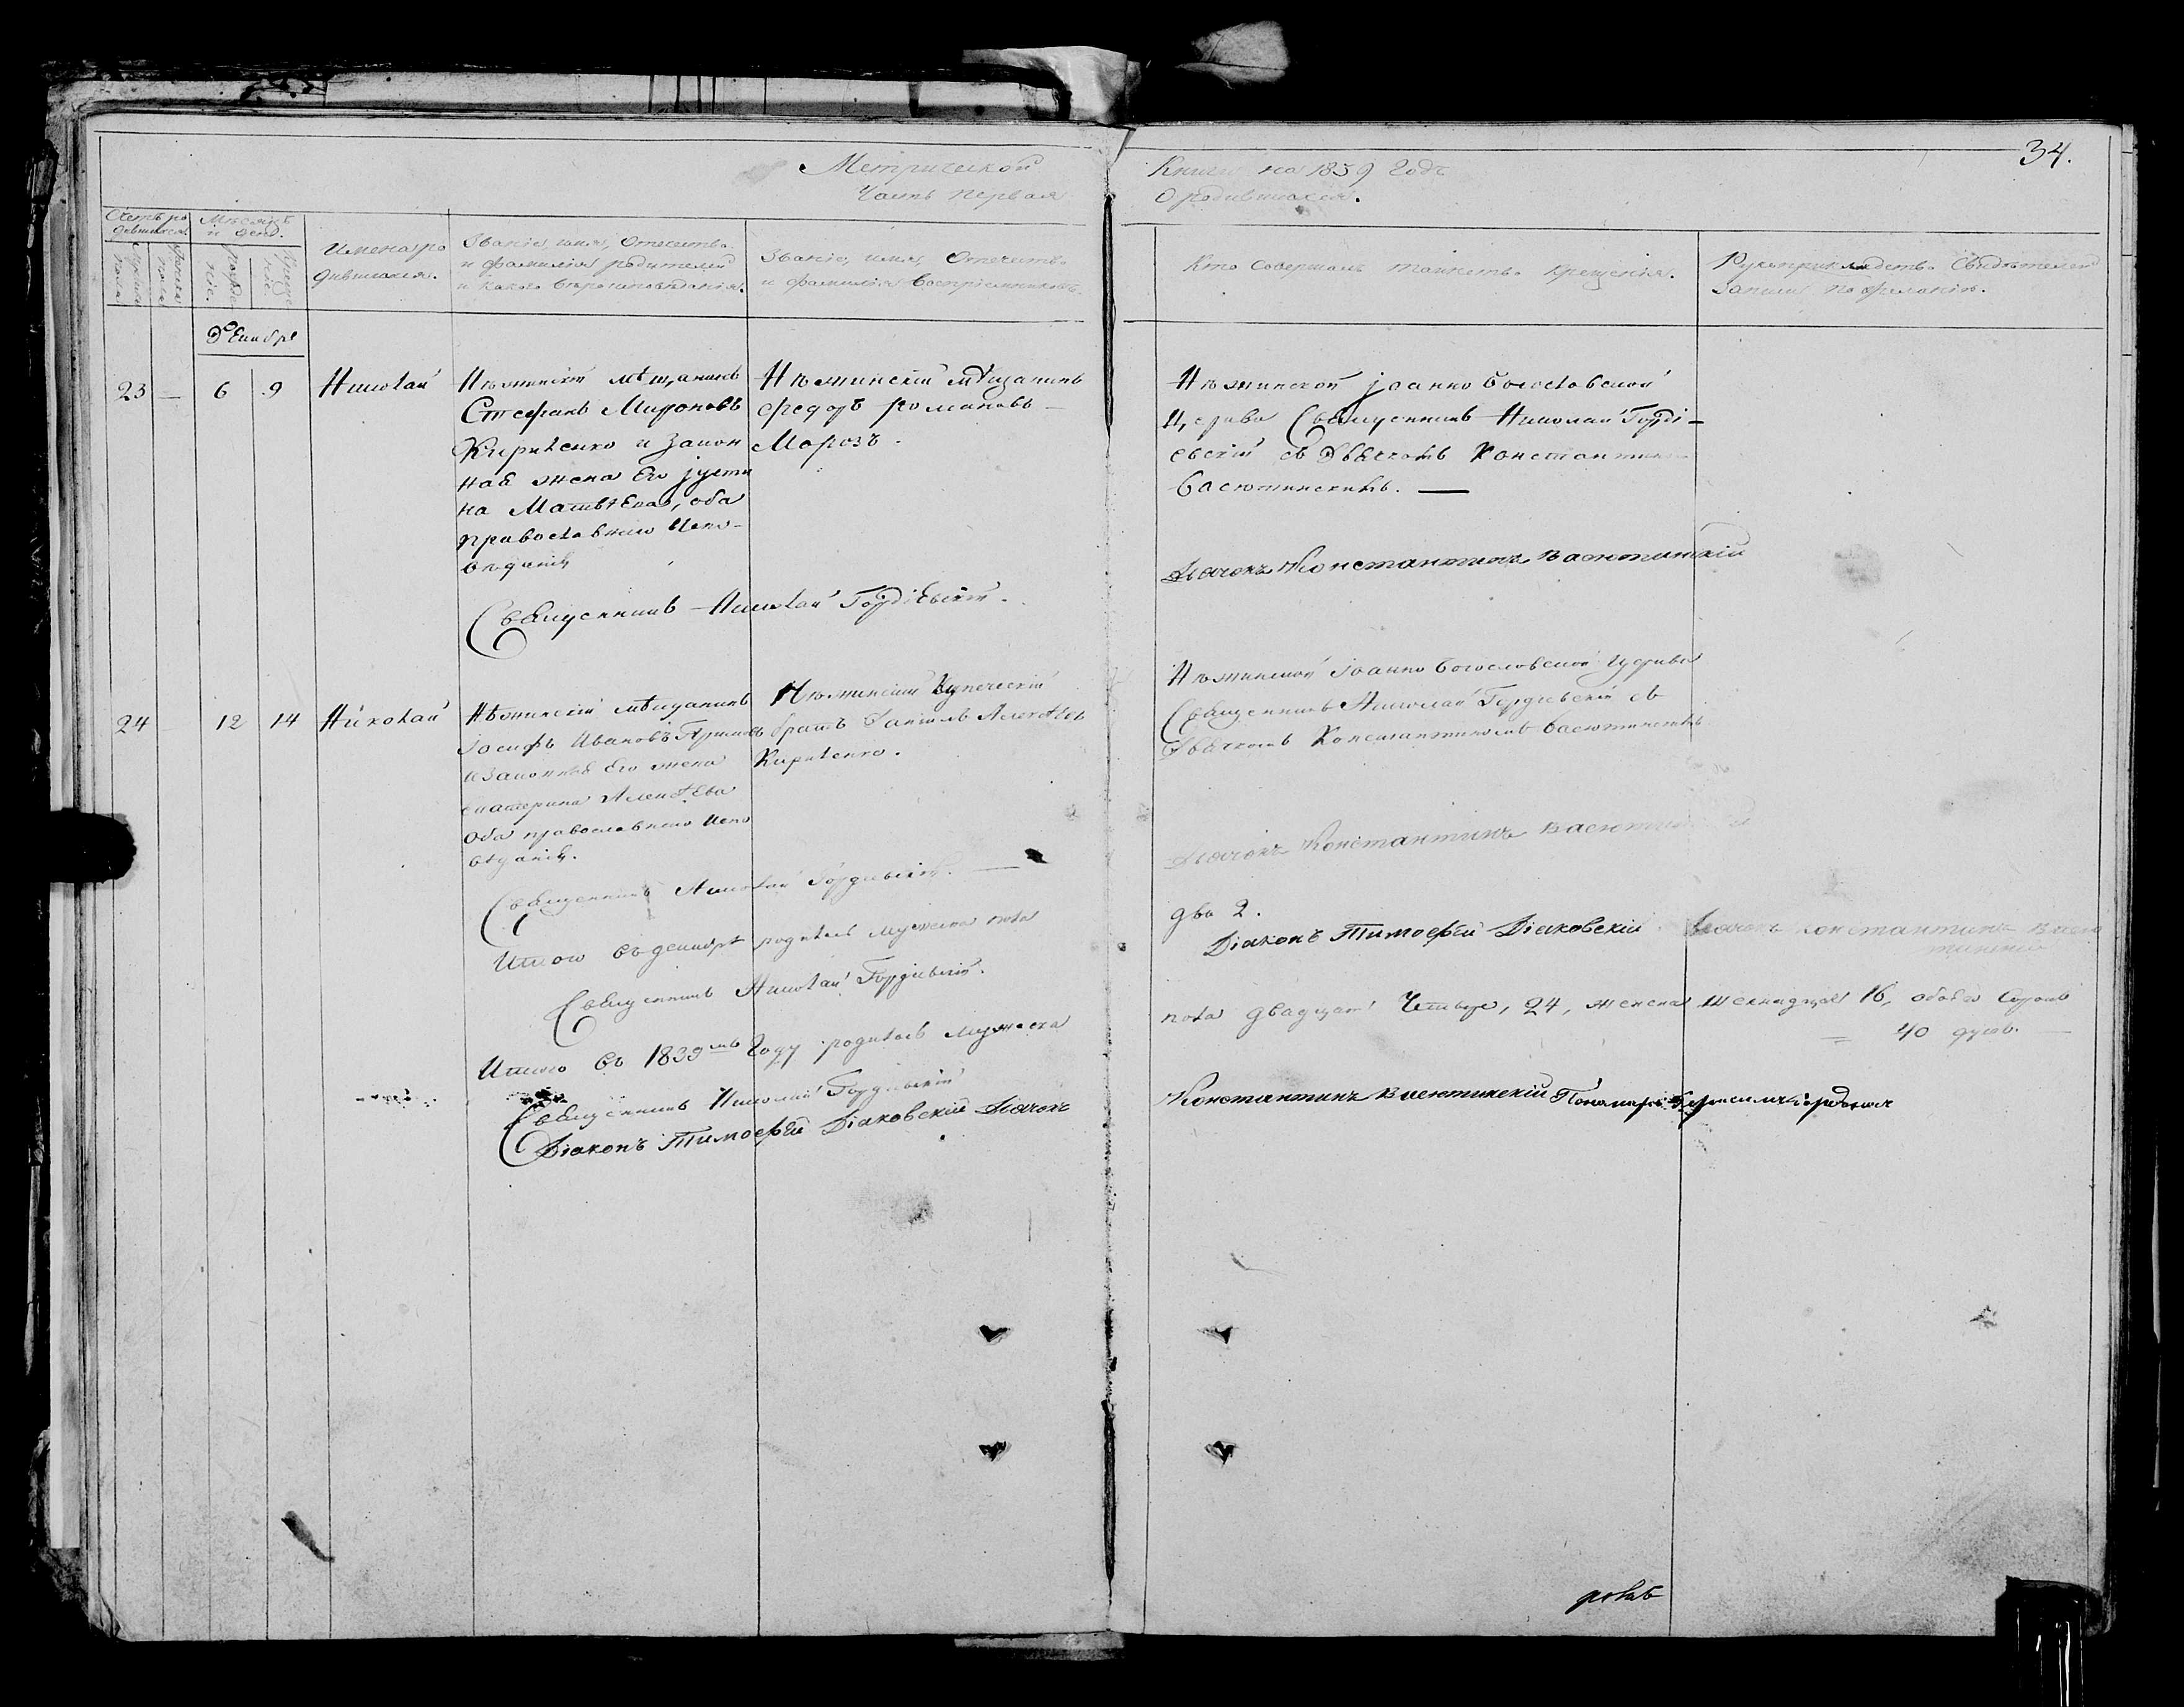 34.
Метрической Книги на 1839 годъ
Часть первая О родившихся.
Счетъ родившихся.
Мѣсяцъ и день.
Имена родившихся.
Званіе, имя, Отечество и фамилія родителей и какого вѣроисповѣданія.
Званіе, имя, Отечество и фамилія воспріемниковъ.
Кто совершалъ таинство крещенія.
Рукоприкладство свидѣтелей записи по желанію.
Декабрь
23 — 6 9 Николай
Нѣжинскій мѣщанинъ
Стефанъ Мироновъ
Кириленко и закон
ная жена Его Іусти
на Матвѣева, оба
православнаго испо-
вѣданія
Нѣжинскій мѣщанинъ
Федоръ Романовъ
Морозъ.
Нѣжинской Іоанно Богословской
Церкви Священникъ Николай Горді-
евскій съ Дьячкомъ Константиномъ
Васютинскимъ. —
Священникъ Николай Гордіевскій.
Дьячокъ Константинъ Васютинскій
24 12 14 Николай
Нѣжинскій мѣщанинъ
Іосифъ Ивановъ
и законная Его жена
Екатерина Алексѣева
оба православнаго испо
вѣданія.
Нѣжинскій купеческій
братъ Алексѣевъ
Кириленко.
Нѣжинской Іоанно Богословской церкви
Священникъ Николай Гордіевскій съ
Дьячкомъ Константиномъ Васютинскимъ
Священникъ Николай Гордіевскій. —
Дьячокъ Константинъ Васютинскій
Итого въ декабрѣ родилось мужеска пола два 2.
Священникъ Николай Гордіевскій.
Діаконъ Тимофей Діаковскій. Дьячокъ Константинъ Васю
тинскій
Итого въ 1839мъ Году родилось мужеска пола двадцать Четыре, 24, женска шестнадцать 16, обоего
40 душъ. —
Священникъ Николай Гордіевскій
Діаконъ Тимофей Діаковскій Дьячокъ Константинъ Васютинскій Пономарь